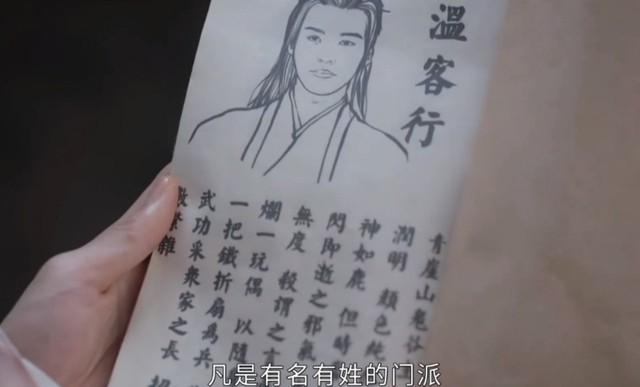 溫客行
青崖山鬼谷
潤明 顏色純
神如鹿 但時
閃即逝之邪氣
無度 殺謂之言
爛一玩偶 以隨
一把鐵折扇為兵
武功采衆家之長 招
繁雜
凡是有名有姓的门派